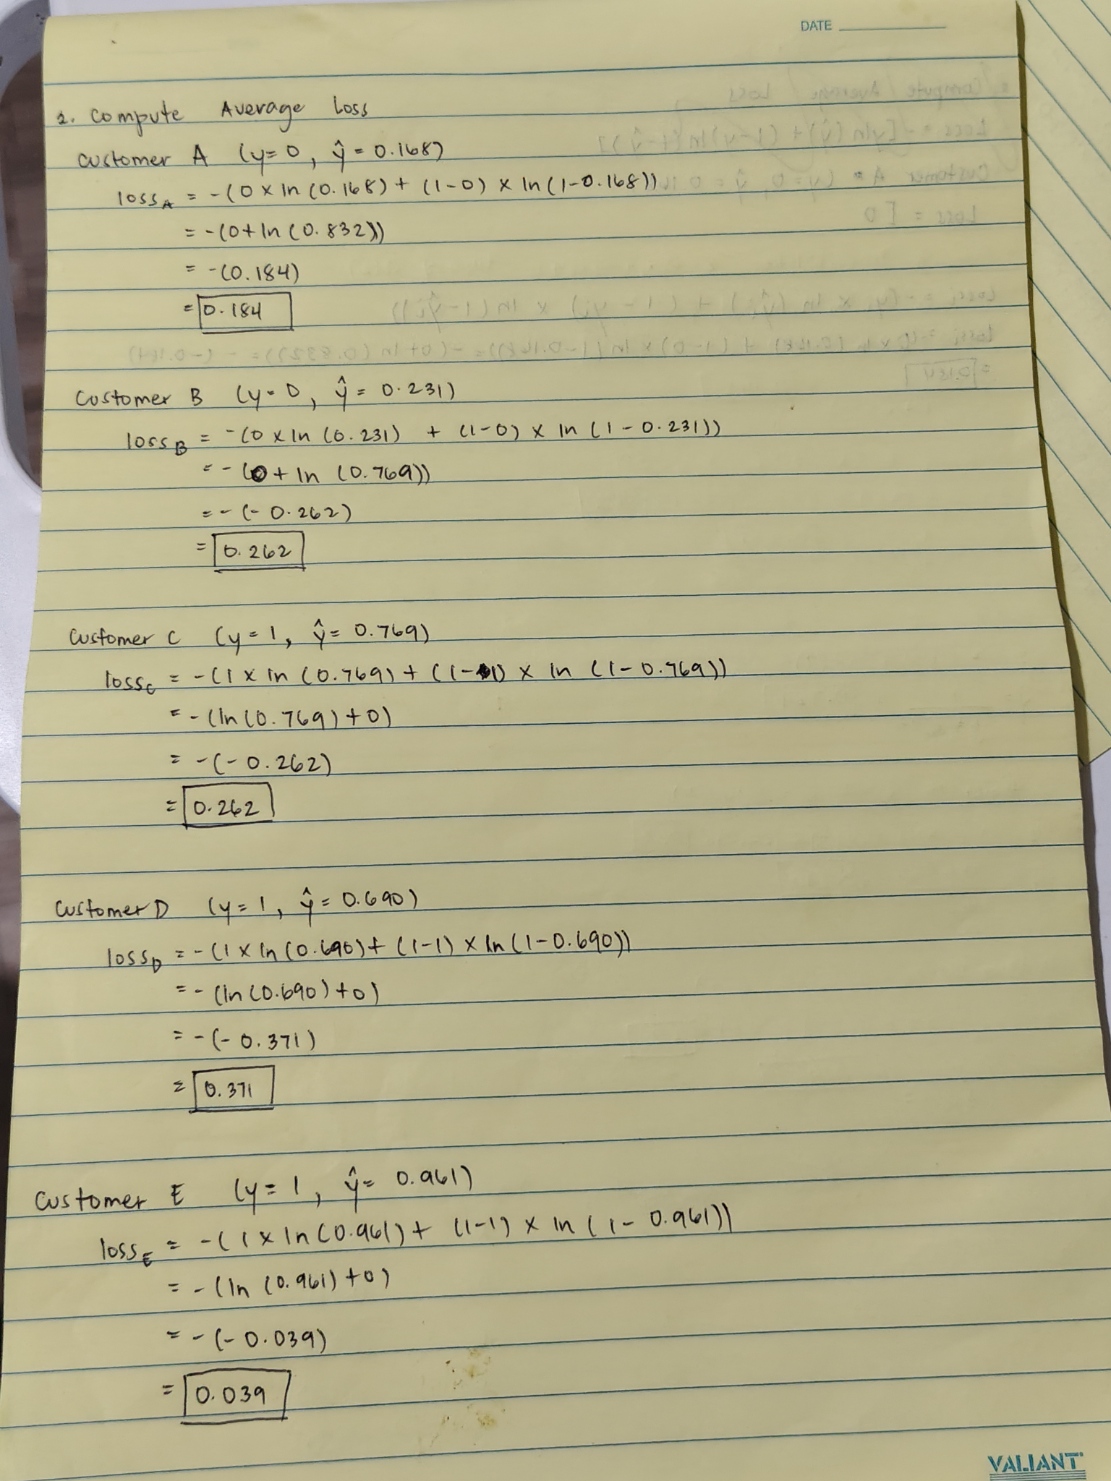 DATE
2. Compute Average Loss
Customer A (y=0, ŷ=0.168)
lossA = -(0 × ln(0.168) + (1-0) × ln(1-0.168))
= -(0+ln(0.832))
= -(0.184)
= 0.184
Customer B (y=0, ŷ=0.231)
lossB = -(0 × ln(0.231) + (1-0) × ln(1-0.231))
= -(0+ln(0.769))
= -(-0.262)
= 0.262
Customer C (y=1, ŷ=0.769)
lossC = -(1 × ln(0.769) + (1-1) × ln(1-0.769))
= -(ln(0.769)+0)
= -(-0.262)
= 0.262
Customer D (y=1, ŷ=0.690)
lossD = -(1 × ln(0.690) + (1-1) × ln(1-0.690))
= -(ln(0.690)+0)
= -(-0.371)
= 0.371
Customer E (y=1, ŷ=0.961)
lossE = -(1 × ln(0.961) + (1-1) × ln(1-0.961))
= -(ln(0.961)+0)
= -(-0.039)
= 0.039
VALIANT